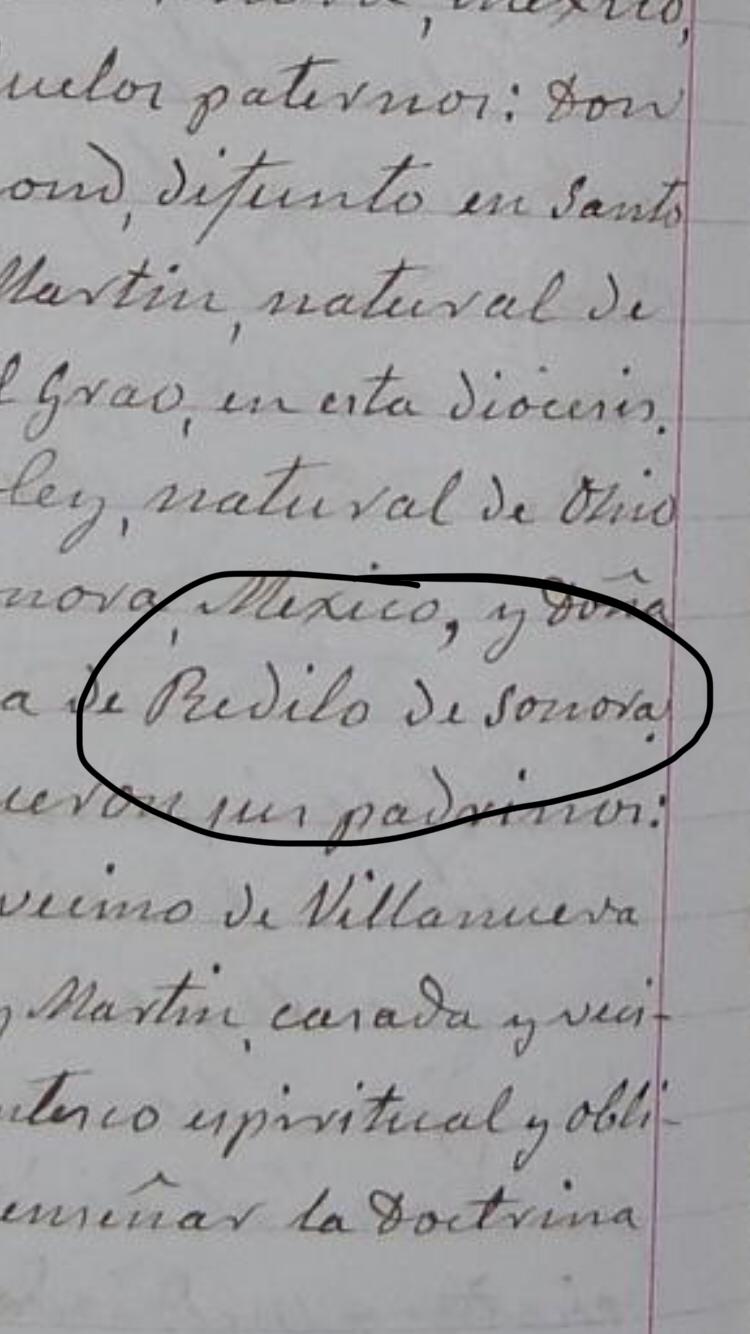 Mexico,
uelos paternos: Don
ond, difunto en Santo
Martin, natural de
l Grao, en esta diócesis.
ley, natural de Ohio
nora, Mexico, y Doña
a de Redilo de Sonora.
ueron sus padrinos:
vecino de Villanueva
y Martin, casada y veci-
ntesco espiritual y obli-
enseñar la Doctrina